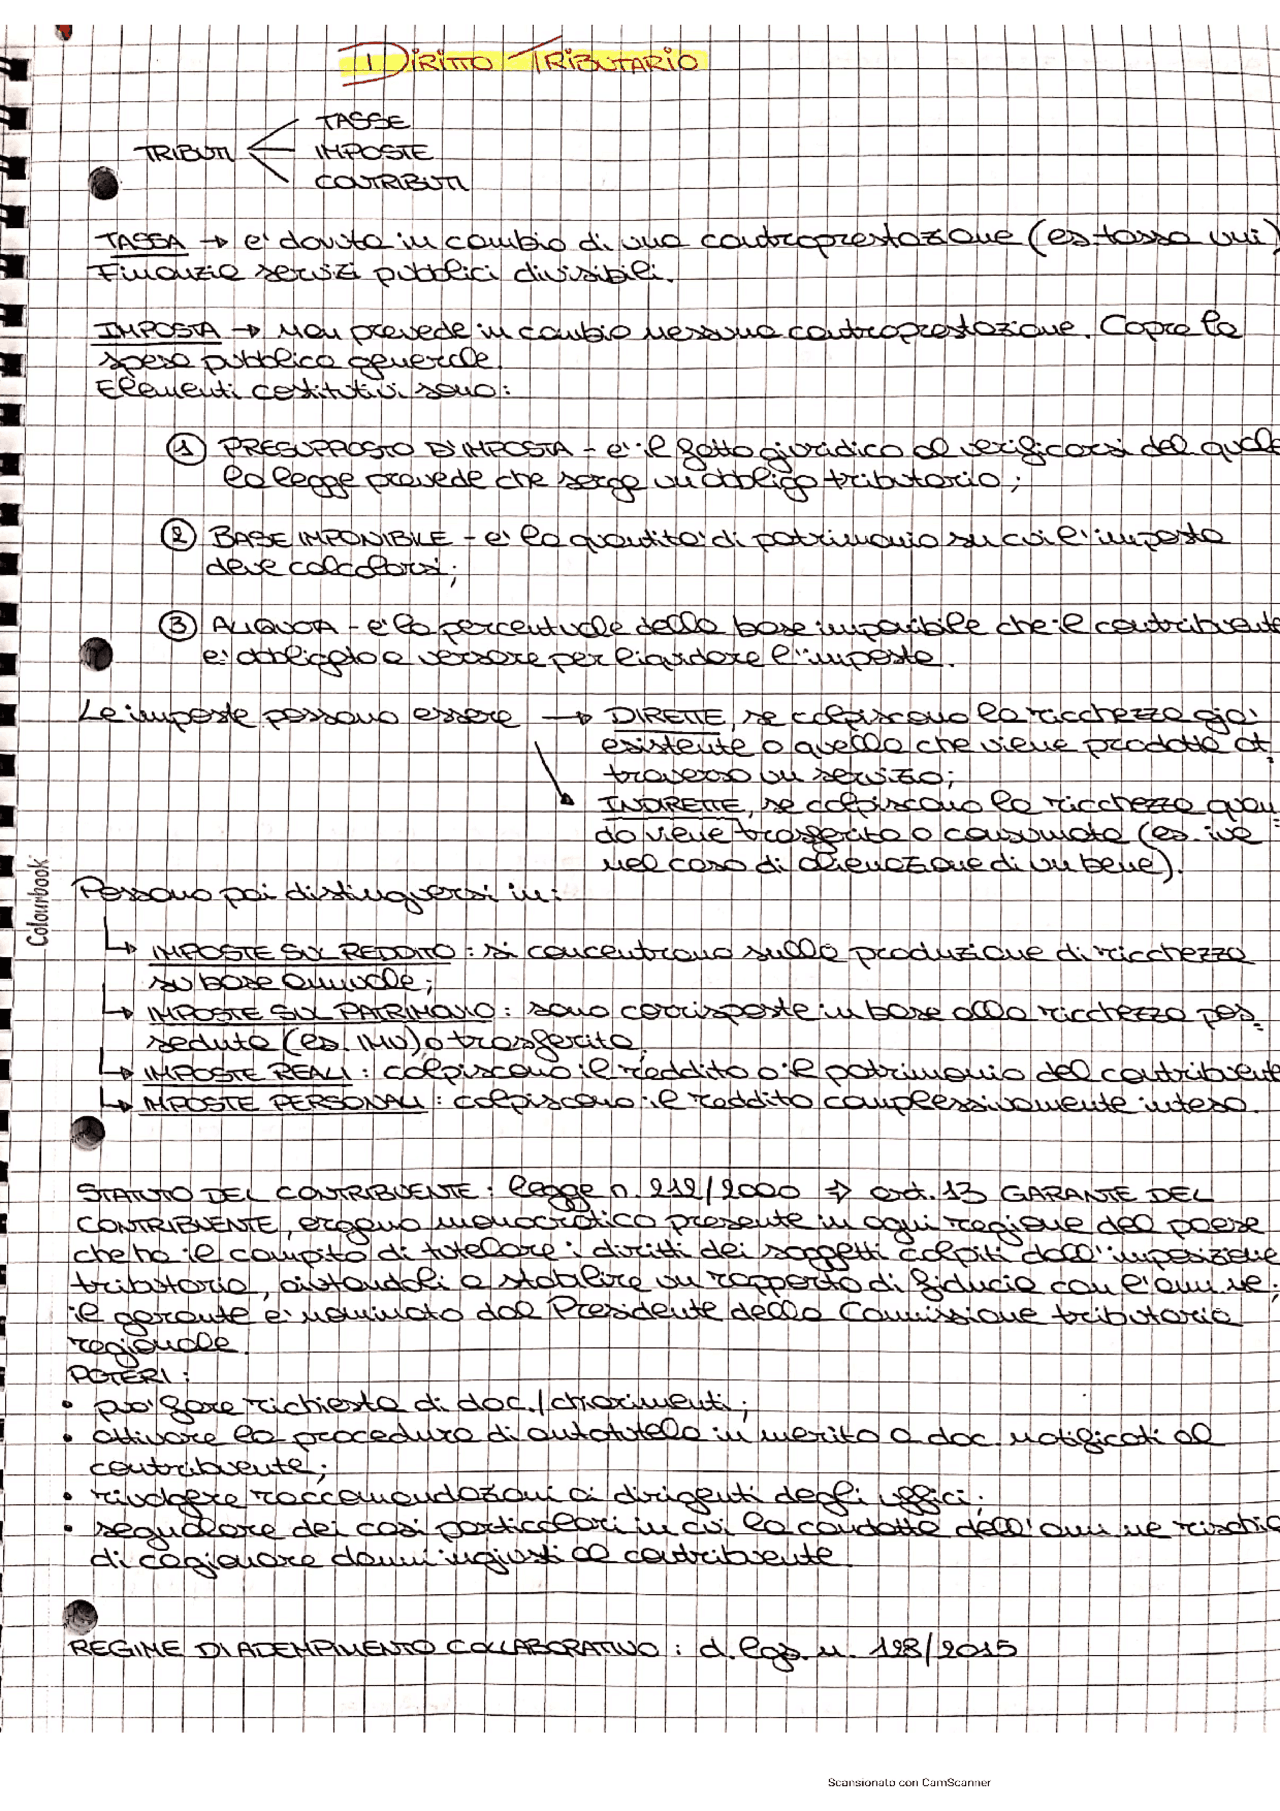 DIRITTO TRIBUTARIO
TRIBUTI
TASSE
IMPOSTE
CONTRIBUTI
TASSA → e' dovuta in cambio di una controprestazione (es tassa uni)
Finanzia servizi pubblici divisibili.
IMPOSTA → Non prevede in cambio nessuna controprestazione. Copre la
spesa pubblica generale.
Elementi costitutivi sono:
① PRESUPPOSTO D'IMPOSTA - e' il fatto giuridico al verificarsi del quale
la legge prevede che serge un obbligo tributario;
② BASE IMPONIBILE - e' la quantita' di patrimonio su cui l'imposta
deve calcolarsi;
③ ALIQUOTA - e' la percentuale della base imponibile che il contribuente
e' obbligato a versare per liquidare l'imposta.
Le imposte possono essere → DIRETTE, se colpiscono la ricchezza gia'
esistente o quella che viene prodotta at
traverso un servizio;
INDIRETTE, se colpiscono la ricchezza quan
do viene trasferita o consumata (es. iva
nel caso di alienazione di un bene).
Possono poi distinguersi in:
↳ IMPOSTE SUL REDDITO: si concentrano sulla produzione di ricchezza
su base annuale;
↳ IMPOSTE SUL PATRIMONIO: sono corrisposte in base alla ricchezza pos=
seduta (es. IMU) o trasferita
↳ IMPOSTE REALI: colpiscono il reddito o il patrimonio del contribuente
↳ IMPOSTE PERSONALI: colpiscono il reddito complessivamente inteso.
STATUTO DEL CONTRIBUENTE: legge n. 212/2000 → art. 13 GARANTE DEL
CONTRIBUENTE, organo monocratico presente in ogni regione del paese
che ha il compito di tutelare i diritti dei soggetti colpiti dall'imposizione
tributaria, aiutandoli a stabilire un rapporto di fiducia con l'amm.ne;
il garante e' nominato dal Presidente della Commissione tributaria
regionale.
POTERI:
• puo' fare richiesta di doc./chiarimenti;
• attivare la procedura di autotutela in merito a doc. notificati al
contribuente;
• rivolgere raccomandazioni ai dirigenti degli uffici;
• segnalare dei casi particolari in cui la condotta dell'amm.ne rischia
di cagionare danni ingiusti al contribuente.
REGIME DI ADEMPIMENTO COLLABORATIVO: d. lgs. n. 128/2015
Colourbook
Scansionato con CamScanner